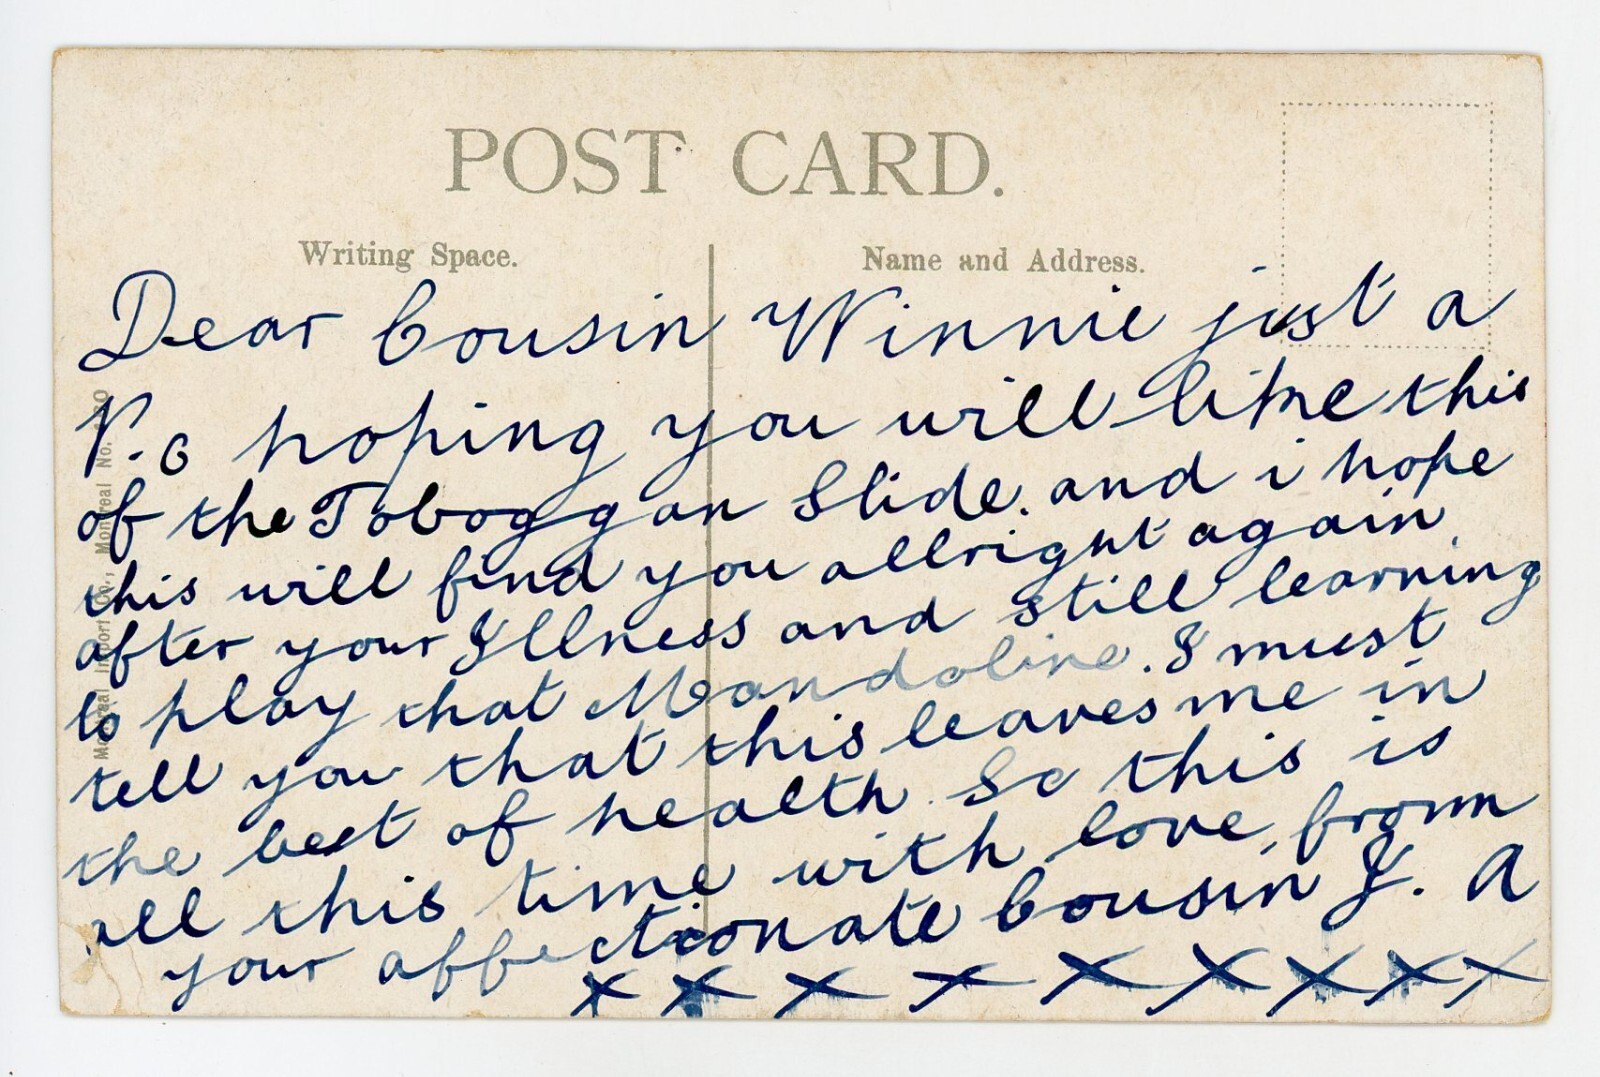 POST CARD.
Writing Space.
Name and Address.
Dear Cousin Winnie just a
P.c hoping you will like this
of the Toboggan Slide. and i hope
this will find you allright again
after your Illness and still learning
to play that Mandoline. I must
tell you that this leaves me in
the best of health. So this is
all this time with love, from
your affectionate Cousin J. A
x x x x x x x x x
Montreal Import Co., Montreal No.